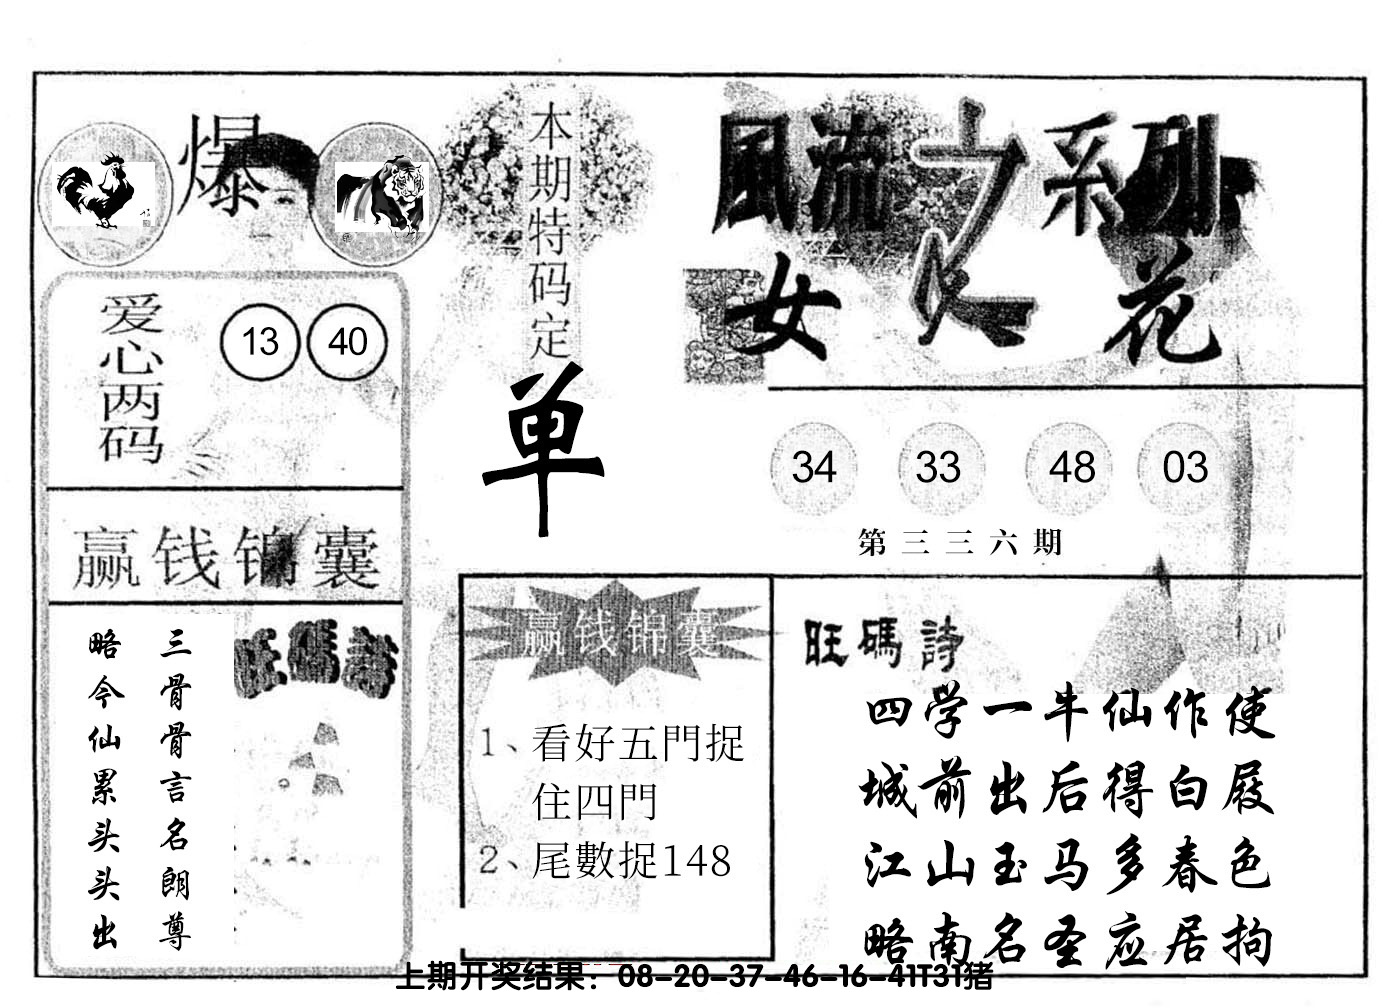 爆
本期特码定
单
風流之系列
女人花
爱心两码
13 40
赢钱锦囊
34 33 48 03
第三三六期
三骨骨言名朗尊
略今仙累头头出
旺碼詩
赢钱锦囊
1、看好五門捉
住四門
2、尾數捉148
旺碼詩
四学一牛仙作使
城前出后得白屐
江山玉马多春色
略南名圣应居拘
上期开奖结果：08-20-37-46-16-41T31猪